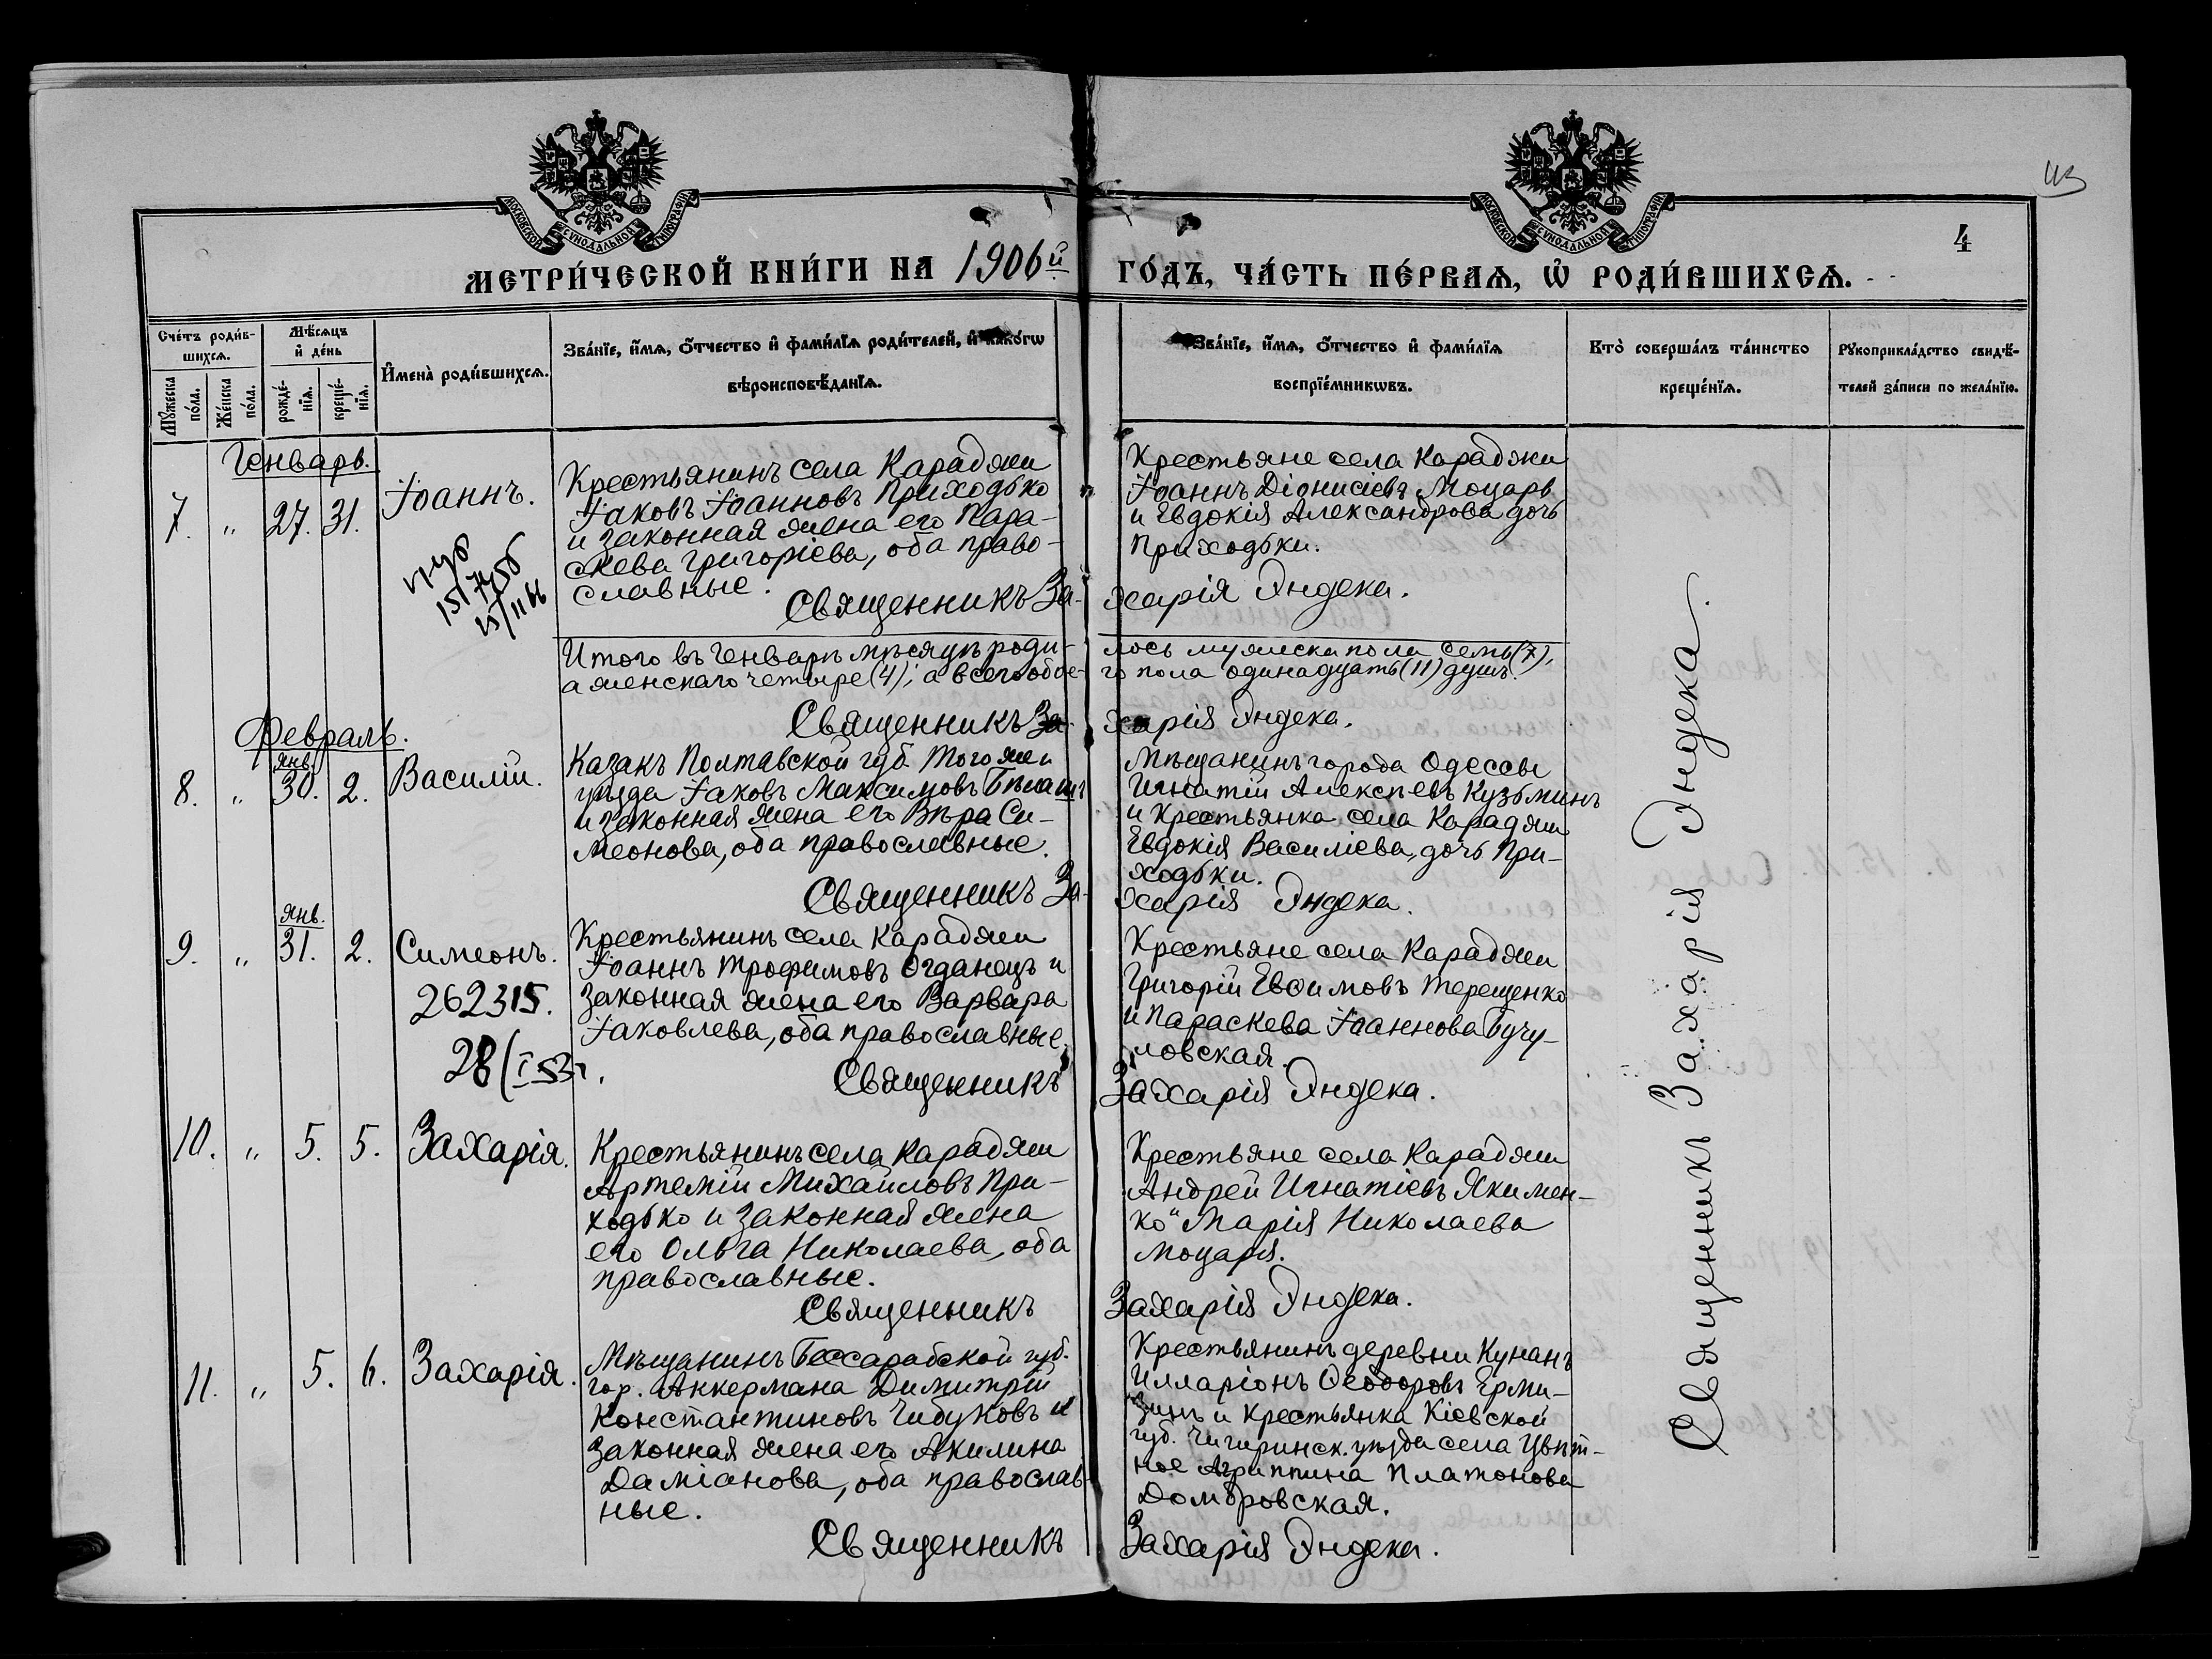 МОСКОВСКОЙ СѴНОДАЛЬНОЙ ТИПОГРАФІИ
МОСКОВСКОЙ СѴНОДАЛЬНОЙ ТИПОГРАФІИ
4
МЕТРИ́ЧЕСКОЙ КНИ́ГИ НА 1906й ГО́ДЪ, ЧА́СТЬ ПЕ́РВАѦ, Ѡ҆ РОДИ́ВШИХСѦ.
Сче́тъ роди́в-
шихсѧ.
Мꙋ́жеска по́ла.
Же́нска по́ла.
Мѣ́сѧцъ и҆ де́нь
рожде́-
нїѧ.
креще́-
нїѧ.
И҆мена̀ роди́вшихсѧ.
Зва́нїе, и҆́мѧ, ѻ҆́тчество и҆ фами́лїѧ роди́телей, и҆ како́гѡ
вѣроисповѣ́данїѧ.
Зва́нїе, и҆́мѧ, ѻ҆́тчество и҆ фами́лїѧ
воспрїе́мникѡвъ.
Кто̀ соверша́лъ та́инство
креще́нїѧ.
Рꙋкоприкла́дство свидѣ́-
телей за́писи по жела́нїю.
Генварь.
7. „ 27. 31. Іоаннъ.
Крестьянинъ села Караджи
Іаковъ Іоанновъ Приходько
и законная жена его Пара-
скева Григоріева, оба право-
славные.
Крестьяне села Караджи
Іоаннъ Діонисіевъ Моцарь
и Евдокія Александрова дочь
Приходьки.
Священникъ Захарія Яндека.
Итого въ Генварѣ мѣсяцѣ роди-лось мужеска пола семь (7),
а женскаго четыре (4); а всего обое-го пола одинадцать (11) душъ.
Священникъ Захарія Яндека.
Февраль.
8. „ янв. 30. 2. Василій.
Казакъ Полтавской губ. того же
уѣзда Іаковъ Максимовъ
и законная жена его Вѣра Си-
меонова, оба православные.
Мѣщанинъ города Одессы
Игнатій Алексѣевъ Кузьминъ
и крестьянка села Караджи
Евдокія Василіева, дочь При-
ходьки.
Священникъ Захарія Яндека.
9. „ янв. 31. 2. Симеонъ.
262315.
Крестьянинъ села Караджи
Іоаннъ Трофимовъ Огданецъ и
законная жена его Варвара
Іаковлева, оба православные.
Крестьяне села Караджи
Григорій Евѳимовъ Терещенко
и Параскева Іоаннова Бучу-
ловская.
Священникъ Захарія Яндека.
10. „ 5. 5. Захарія.
Крестьянинъ села Караджи
Артемій Михайловъ При-
ходько и законная жена
его Ольга Николаева, оба
православные.
Крестьяне села Караджи
Андрей Игнатіевъ Якимен-
ко и Марія Николаева
Моцаря.
Священникъ Захарія Яндека.
11. „ 5. 6. Захарія.
Мѣщанинъ Бессарабской губ.
гор. Аккермана Димитрій
Константиновъ Чибуковъ и
законная жена его Акилина
Даміанова, оба православ-
ные.
Крестьянинъ деревни Кунанъ
Илларіонъ Ѳеодоровъ Ерми-
зинъ и крестьянка Кіевской
губ. Чигиринск. уѣзда села Цвѣт-
ное Агриппина Платонова
Домбровская.
Священникъ Захарія Яндека.
Священникъ Захарія Яндека.